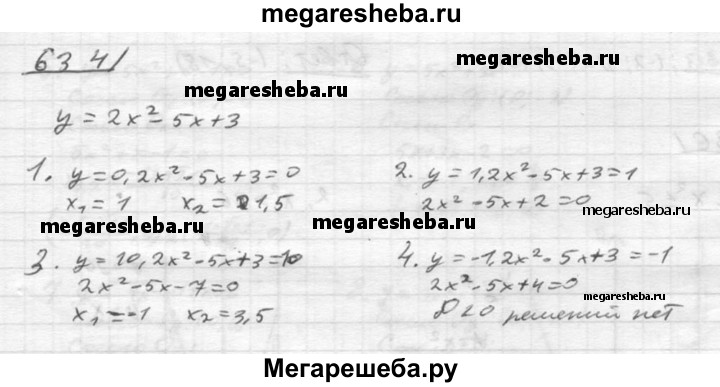 megaresheba.ru
634
megaresheba.ru
megaresheba.ru
y = 2x² - 5x + 3
1. y = 0, 2x² - 5x + 3 = 0
x₁ = 1 x₂ = 1,5
2. y = 1, 2x² - 5x + 3 = 1
2x² - 5x + 2 = 0
megaresheba.ru
megaresheba.ru
megaresheba.ru
3. y = 10, 2x² - 5x + 3 = 10
2x² - 5x - 7 = 0
x₁ = -1 x₂ = 3,5
4. y = -1, 2x² - 5x + 3 = -1
2x² - 5x + 4 = 0
megaresheba.ru
D < 0 решений нет
Мегарешеба.ру